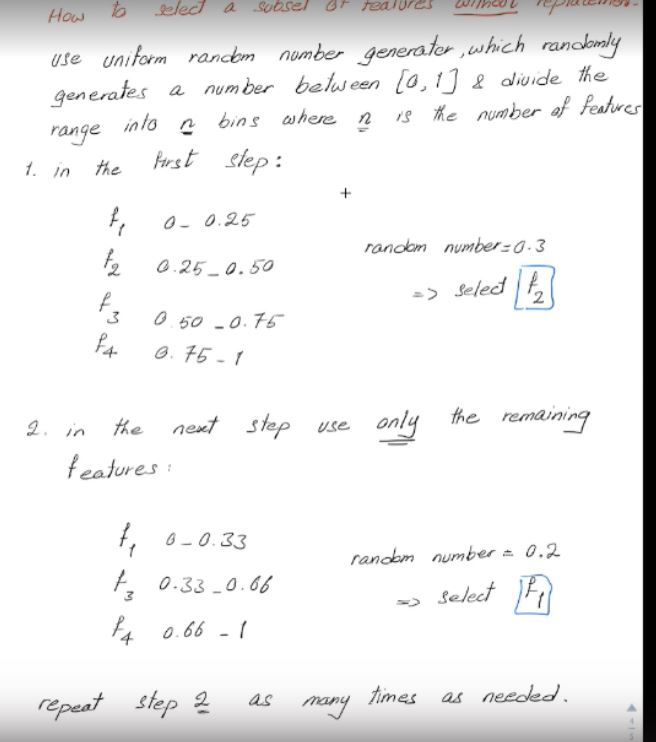 How to select a subset of features without replacement.
use uniform random number generator, which randomly
generates a number between [0, 1] & divide the
range into n bins where n is the number of features
1. in the first step:
+
f1 0 - 0.25
f2 0.25 - 0.50
random number = 0.3
=> select f2
f3 0.50 - 0.75
f4 0.75 - 1
2. in the next step use only the remaining
features:
f1 0 - 0.33
random number = 0.2
f3 0.33 - 0.66
=> select f1
f4 0.66 - 1
repeat step 2 as many times as needed.